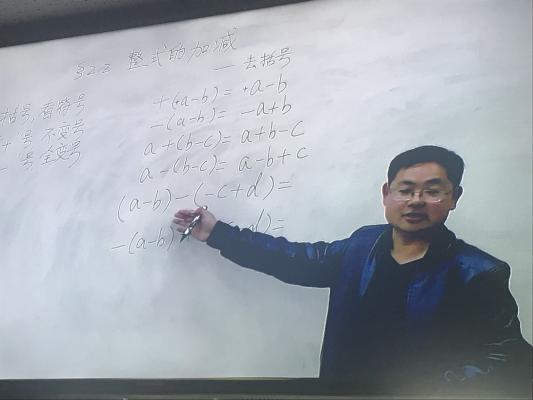 §2.2 整式的加减
— 去括号
括号,看符号
+号 不变号
-号 全变号
+(+a-b)=+a-b
-(a-b)=-a+b
a+(b-c)=a+b-c
a-(b-c)=a-b+c
(a-b)-(-c+d)=
-(a-b)
d)=